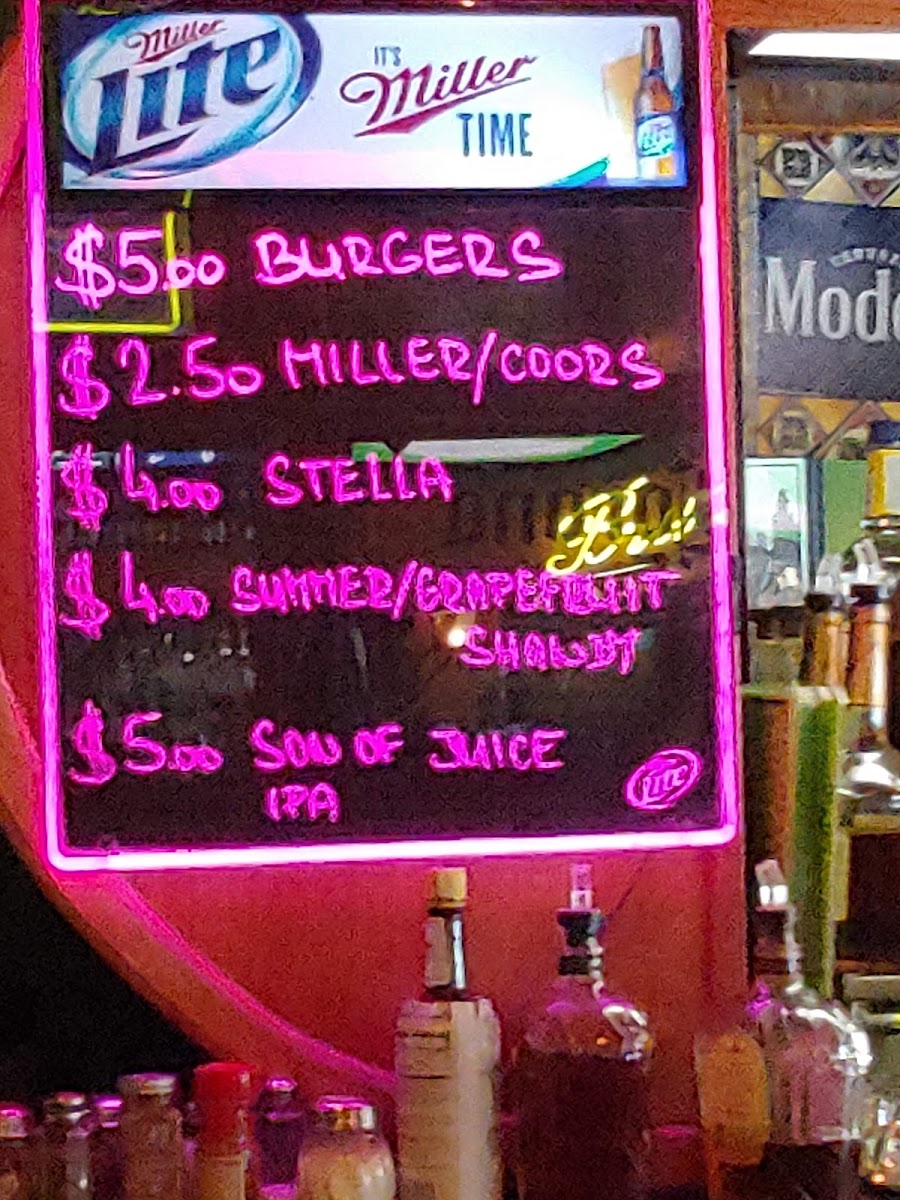 Miller
Lite
IT'S
Miller
TIME
$5.00 BURGERS
$2.50 MILLER/COORS
$4.00 STELLA
$4.00 SUMMER/GRAPEFRUIT
SHANDY
$5.00 SON OF JUICE
IPA
Lite